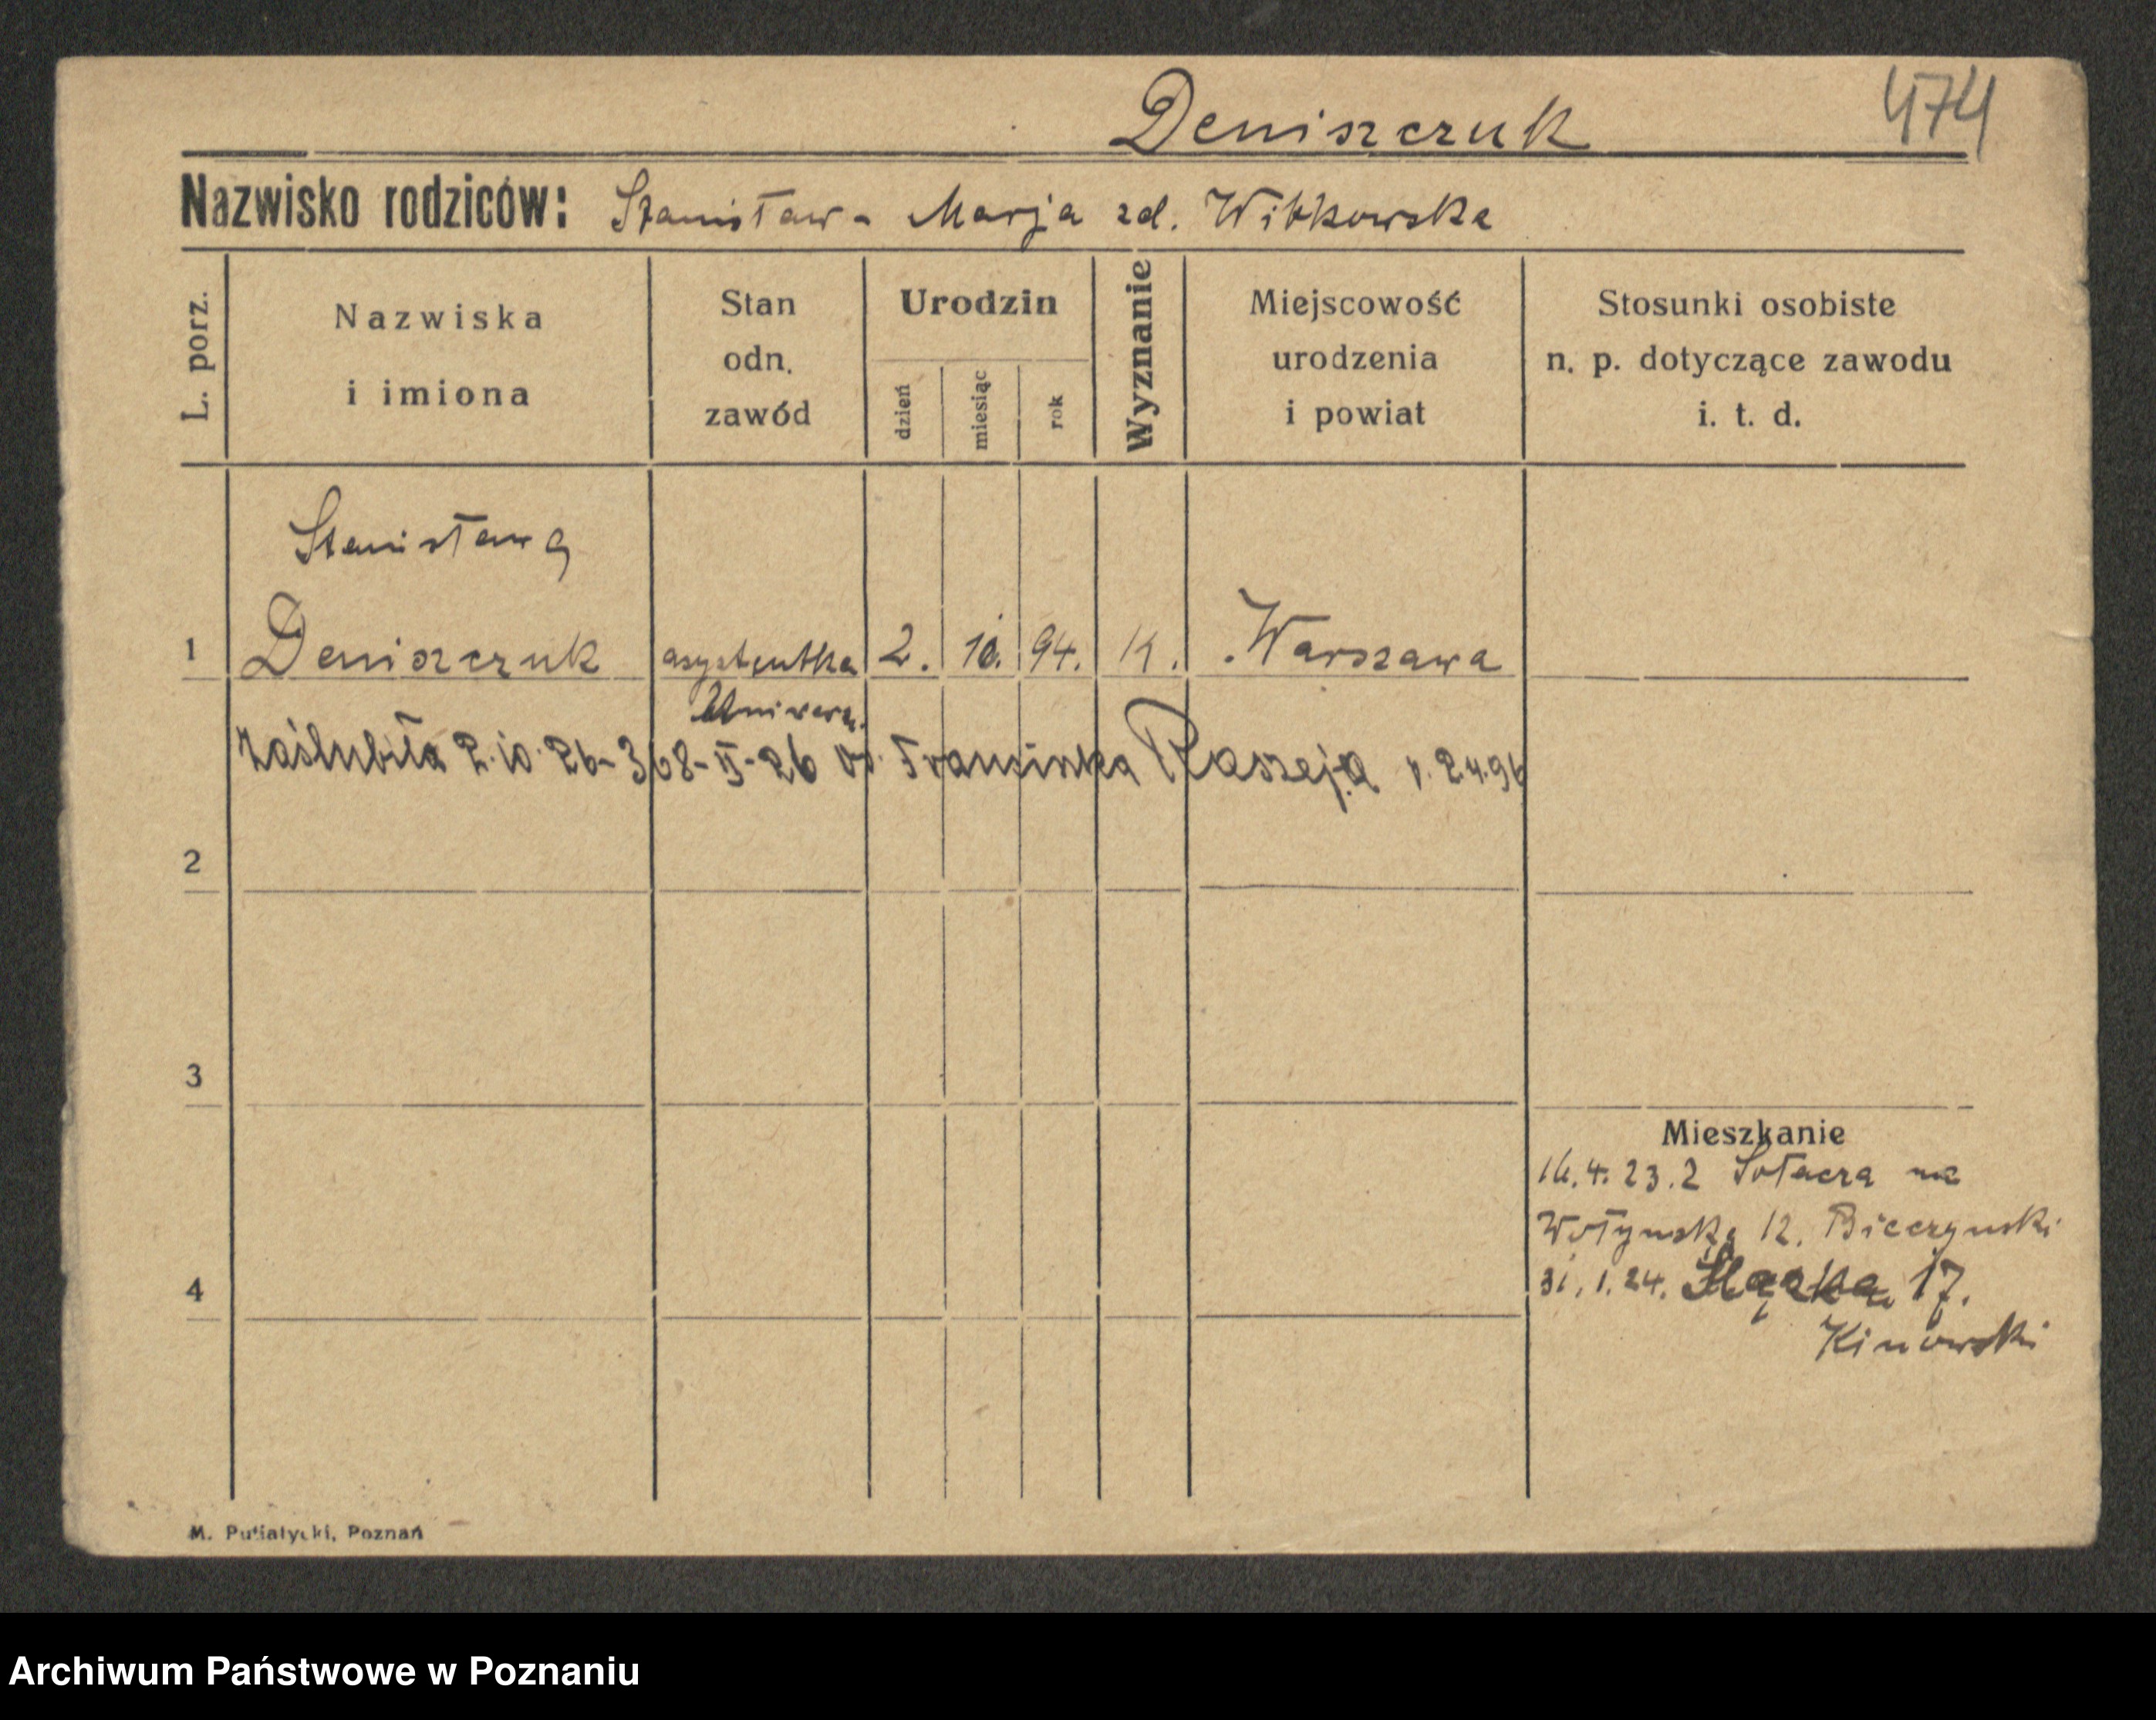 Deniszczuk
474
Nazwisko rodziców: Stanisław - Marja zd. Witkowska
L. porz.
Nazwiska i imiona
Stan odn. zawód
Urodzin
dzień
miesiąc
rok
Wyznanie
Miejscowość urodzenia i powiat
Stosunki osobiste n. p. dotyczące zawodu i. t. d.
Stanisława
1 Deniszczuk asystentka 2. 10. 94. K. Warszawa
Uniwers.
zaślubiła 2.10.26 - 368-II-26 Franciszka Raszeja 2.4.96
2
3
Mieszkanie
16.4.23. z Sołacza na
Wołyńską 12. Bieczyński
4
31.1.24. Śląska 17.
Kinowski
M. Putiatycki, Poznań
Archiwum Państwowe w Poznaniu